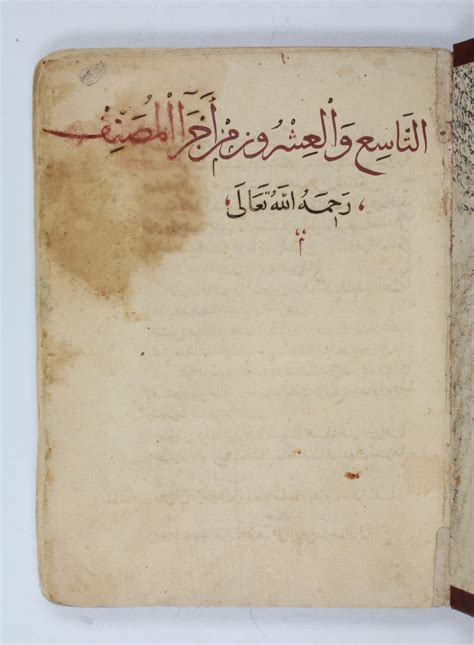 التَّاسِع وَالْعِشْرُونَ مِنْ أَجْزَآءِ الْمُصَنِّفِ
رَحِمَهُ اللهُ تَعَالَى